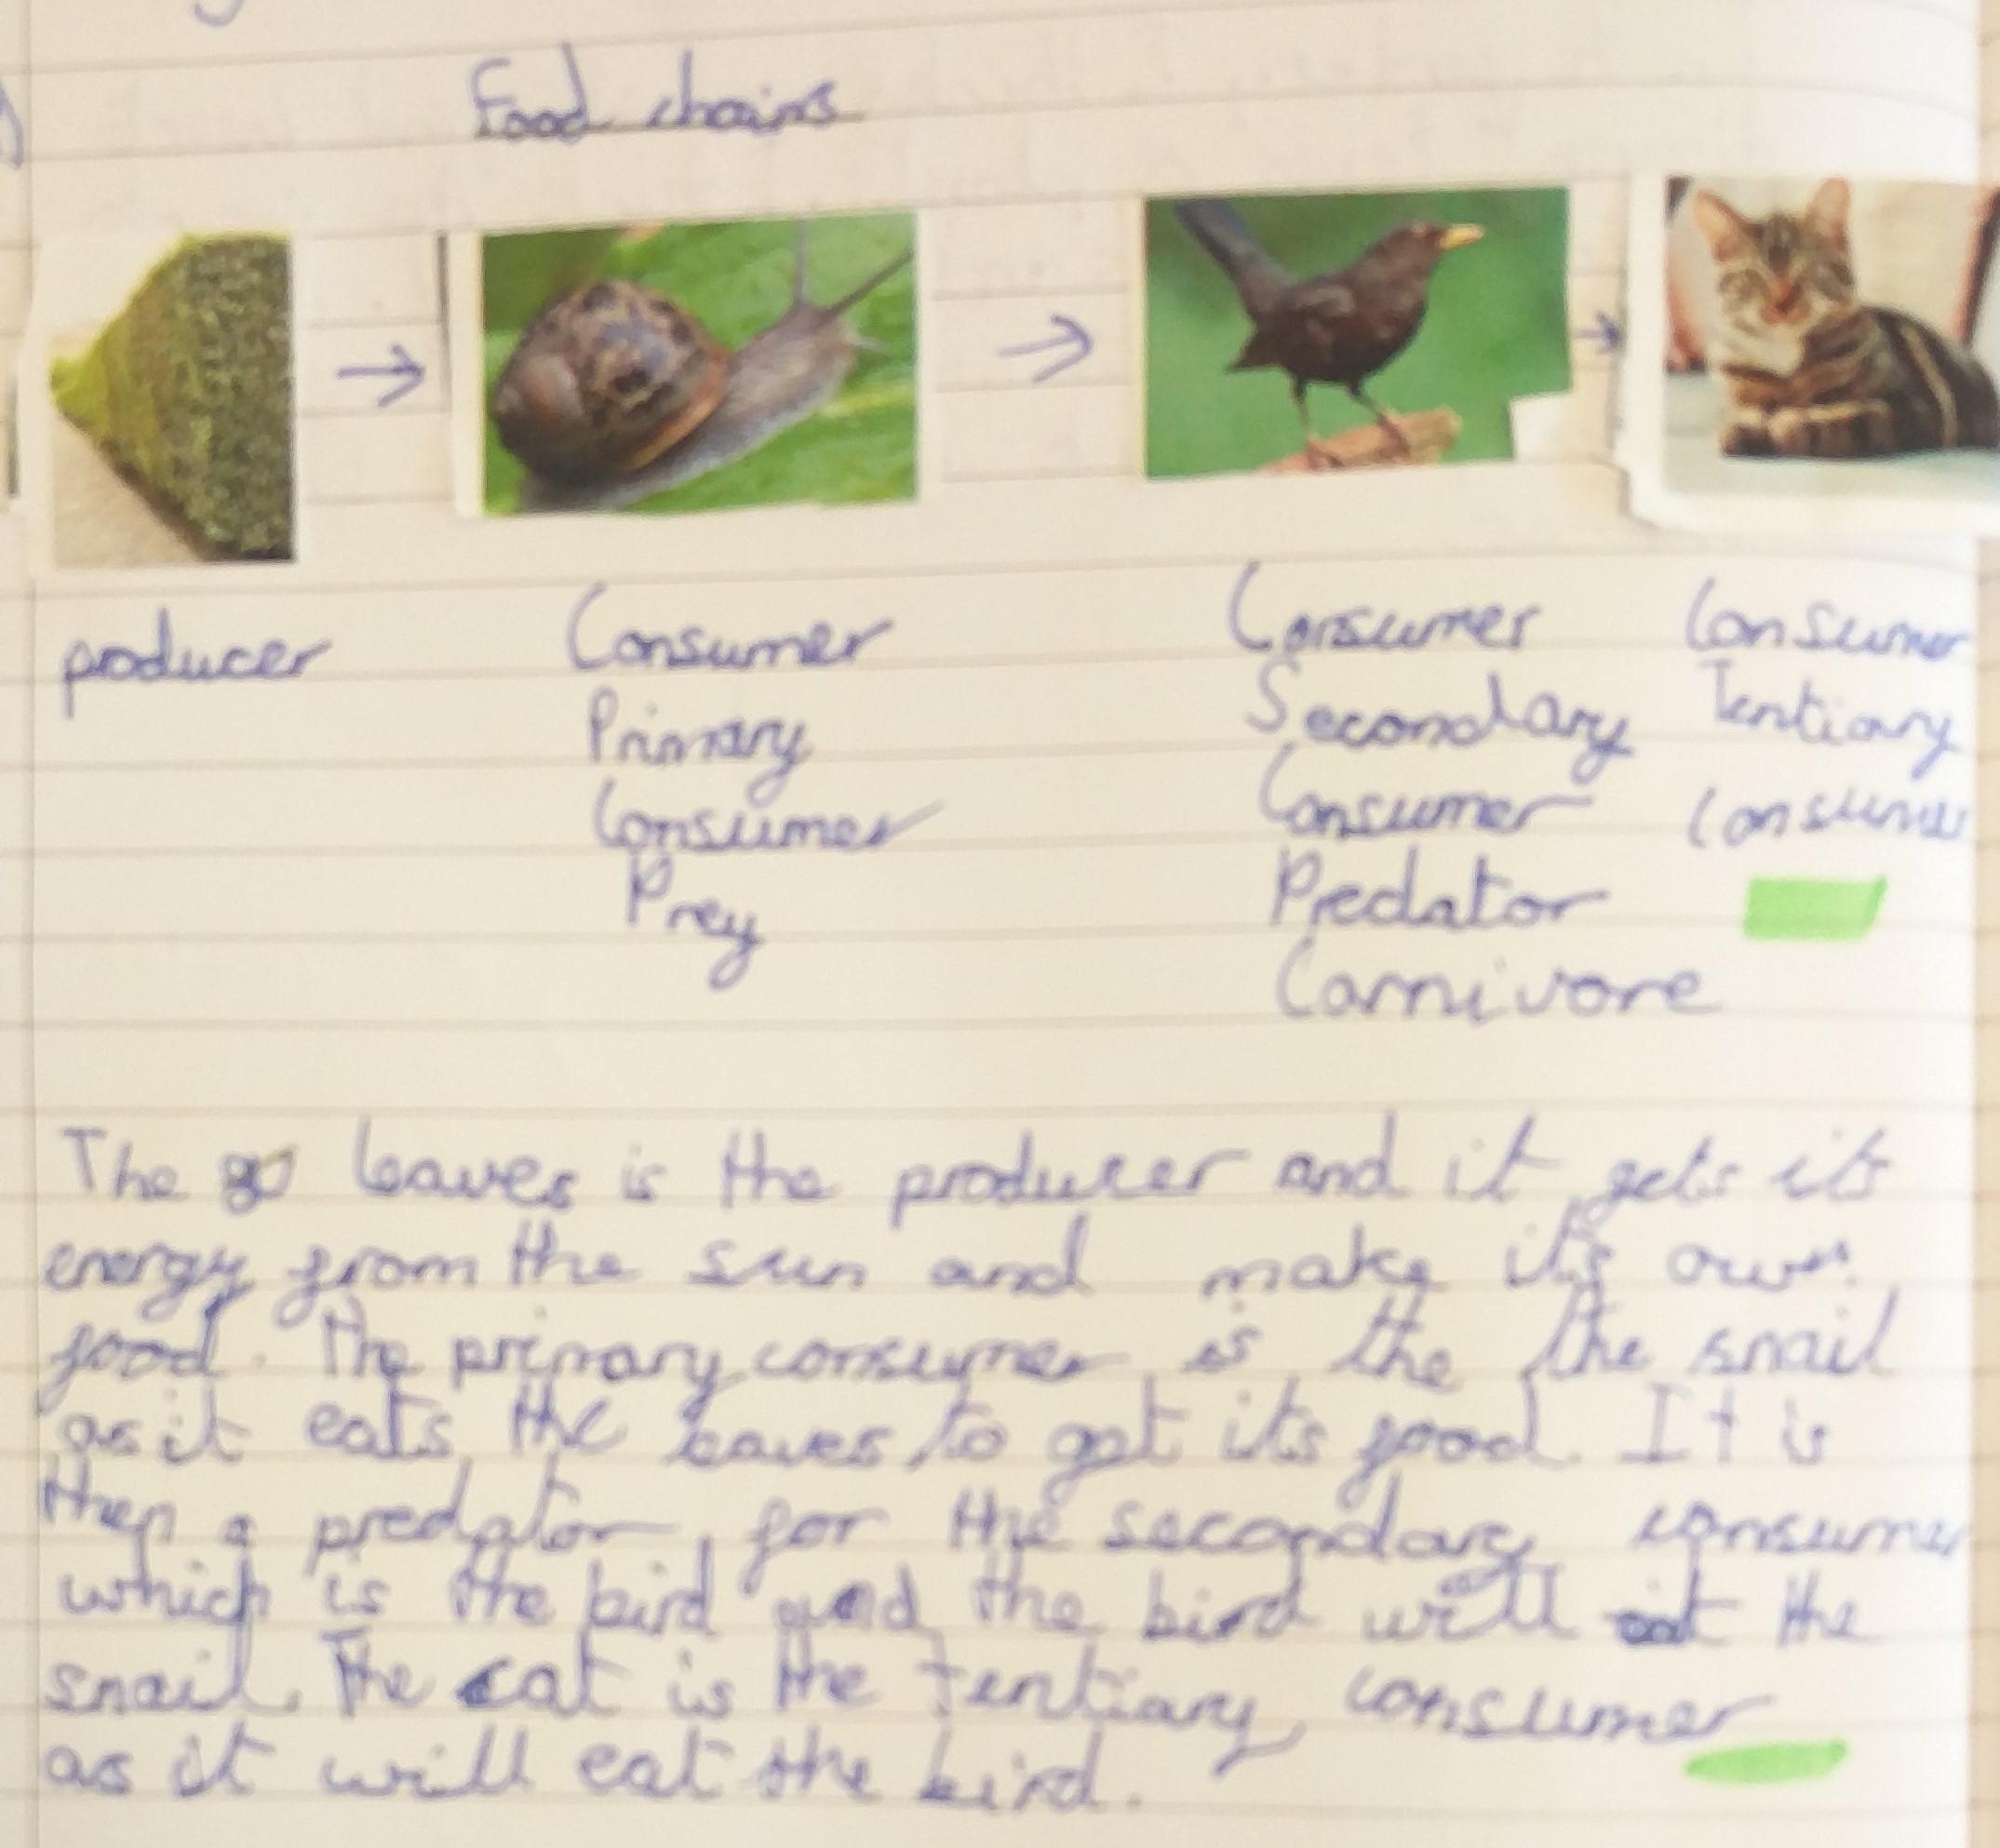 Food chains
producer
Consumer
Primary
Consumer
Prey
Consumer
Secondary
Consumer
Predator
Carnivore
Consumer
Tentiary
Consumer
The leaves is the producer and it gets it's
energy from the sun and make it's own
food. The primary consumer is the the snail
as it eats the leaves to get its food. It is
then a predator for the secondary consumer
which is the bird and the bird will eat the
snail. The cat is the tentiary consumer
as it will eat the bird.